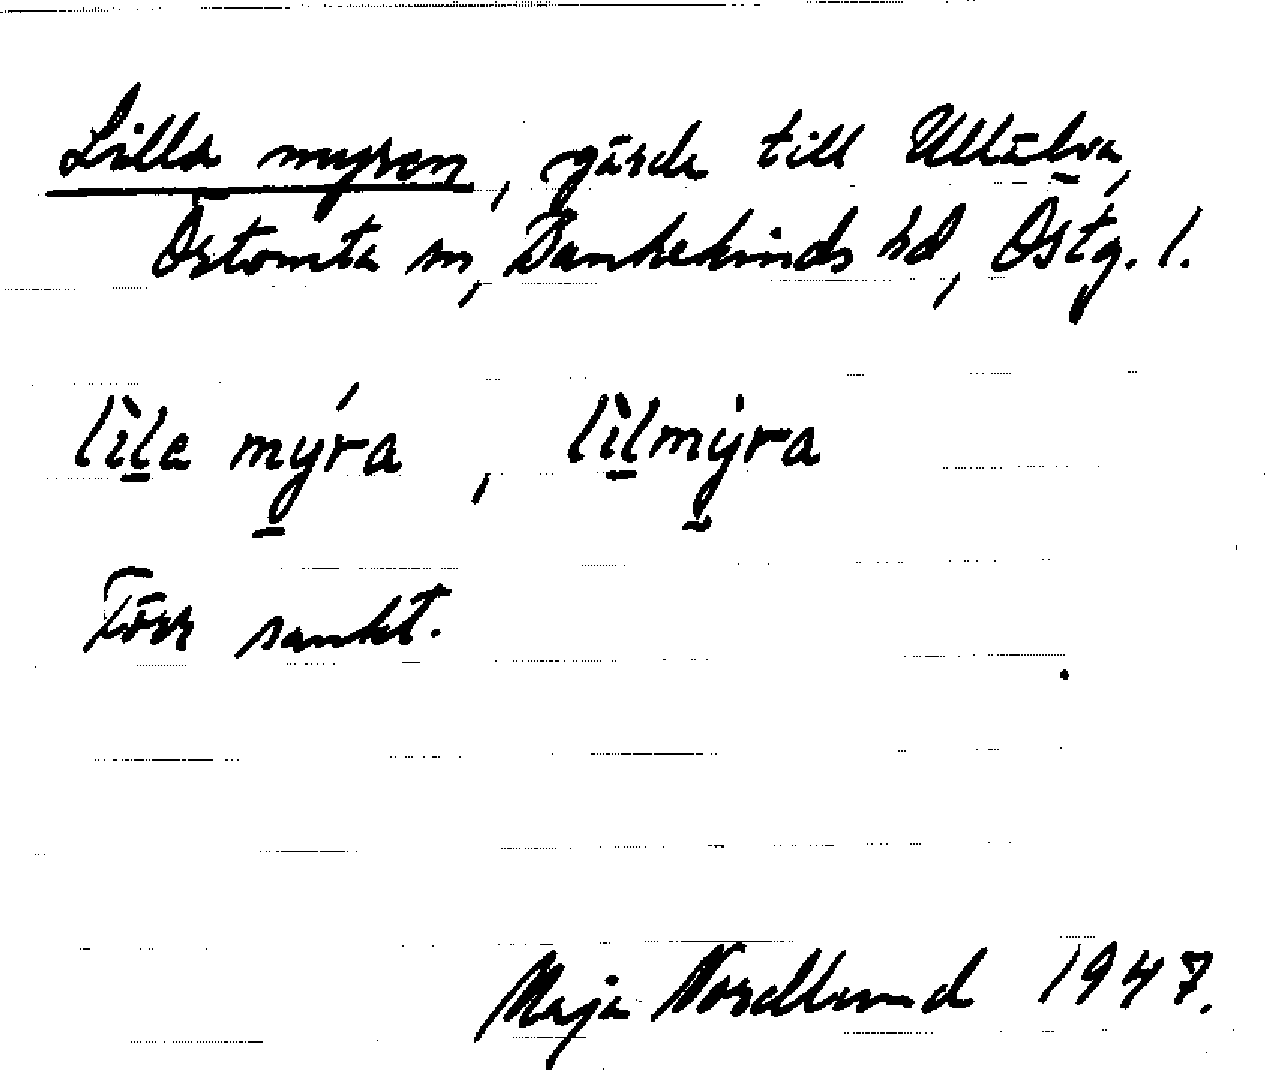 Lilla myren, gärde till Ullälva,
Östomta sn, Bankekinds hd, Östg. l.
lìle mýra, lìlmỳra
Förr sankt.
Maja Nordlund 1947.